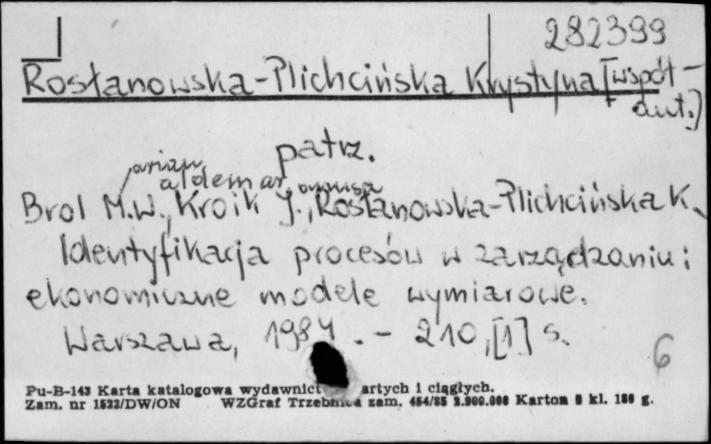 282399
Rosłanowska-Plichcińska Krystyna [współ-
aut.]
patrz.
arian
aldemar,
Brol M.W., Kroik J., Rosłanowska-Plichcińska K.
Identyfikacja procesów w zarządzaniu:
ekonomiczne modele wymiarowe.
Warszawa, 1984. - 210, [1] s.
6
Pu-B-143 Karta katalogowa wydawnict artych i ciągłych.
Zam. nr 1522/DW/ON WZGraf Trzebnica zam. 454/85 2.900.000 Karton kl. 180 g.